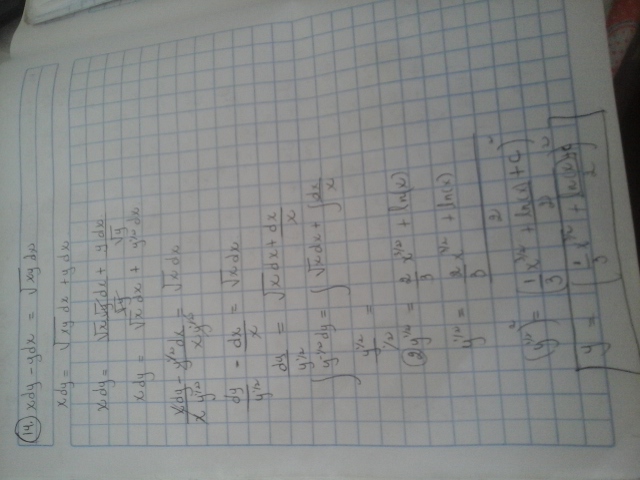 14. xdy - ydx = √xy dx
xdy = √xy dx + ydx
xdy = √x√y dx + y dx
√y √y
xdy = √x dx + y^1/2 dx
xdy - y^1/2 dx = √x dx
x y^1/2 x y^1/2
dy - dx = √x dx
y^1/2 x
dy = √x dx + dx
y^1/2 x
∫ y^-1/2 dy = ∫ √x dx + ∫ dx/x
y^1/2 =
1/2
2 y^1/2 = 2/3 x^3/2 + ln(x)
y^1/2 = 2/3 x^3/2 + ln(x)
2
(y^1/2)^2 = (1/3 x^3/2 + ln(x) + C / 2)^2
y = (1/3 x^3/2 + ln(x) + C / 2)^2